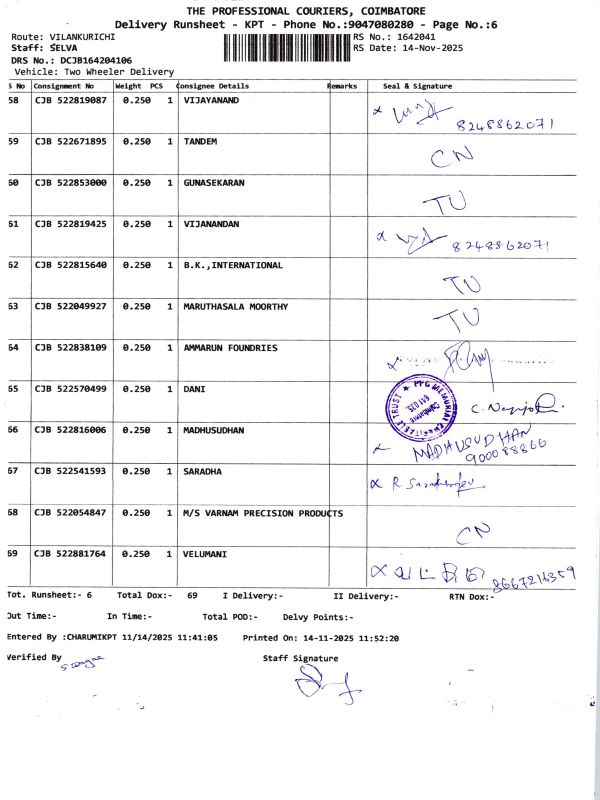 THE PROFESSIONAL COURIERS, COIMBATORE
Delivery Runsheet - KPT - Phone No.:9047080280 - Page No.:6
Route: VILANKURICHI
RS No.: 1642041
Staff: SELVA
RS Date: 14-Nov-2025
DRS No.: DCJB164204106
Vehicle: Two Wheeler Delivery
S No Consignment No Weight PCS Consignee Details Remarks Seal & Signature
58 CJB 522819087 0.250 1 VIJAYANAND
8248862071
59 CJB 522671895 0.250 1 TANDEM
CN
60 CJB 522853000 0.250 1 GUNASEKARAN
TU
61 CJB 522819425 0.250 1 VIJANANDAN
8248862071
62 CJB 522815640 0.250 1 B.K.,INTERNATIONAL
TU
63 CJB 522049927 0.250 1 MARUTHASALA MOORTHY
TU
64 CJB 522838109 0.250 1 AMMARUN FOUNDRIES
65 CJB 522570499 0.250 1 DANI
PPG MEMORIAL CHARITABLE TRUST
Coimbatore
641 035
66 CJB 522816006 0.250 1 MADHUSUDHAN
MADHUSUDHAN
900088866
67 CJB 522541593 0.250 1 SARADHA
68 CJB 522054847 0.250 1 M/S VARNAM PRECISION PRODUCTS
CN
69 CJB 522881764 0.250 1 VELUMANI
8667216359
Tot. Runsheet:- 6 Total Dox:- 69 I Delivery:- II Delivery:- RTN Dox:-
Out Time:- In Time:- Total POD:- Delvy Points:-
Entered By :CHARUMIKPT 11/14/2025 11:41:05 Printed On: 14-11-2025 11:52:20
Verified By Staff Signature